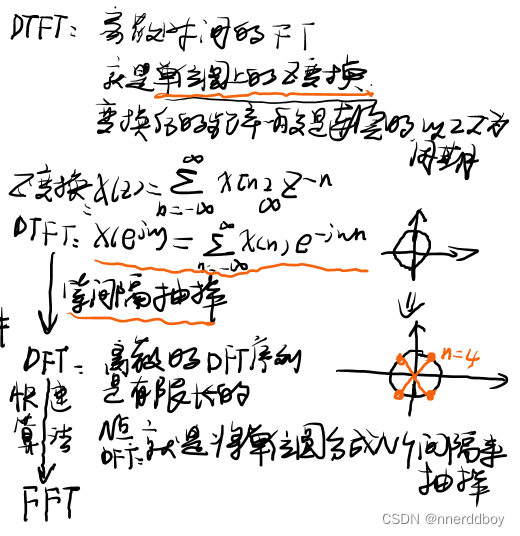 DTFT: 离散时间的FT
就是单位圆上的Z变换.
变换后的频率一定是连续的 以2π为
周期
Z变换: X(z) = ∑_{n=-∞}^{∞} x(n) z^{-n}
DTFT: X(e^{jw}) = ∑_{n=-∞}^{∞} x(n) e^{-jwn}
等间隔抽样
DFT: 离散的DFT序列
是有限长的
n=4
快速
算法
N点
DFT: 就是将单位圆分成N个间隔来
抽样
FFT
CSDN @nnerddboy